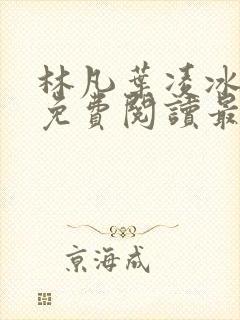 林凡葉凌冰
免費閱讀最
京海成